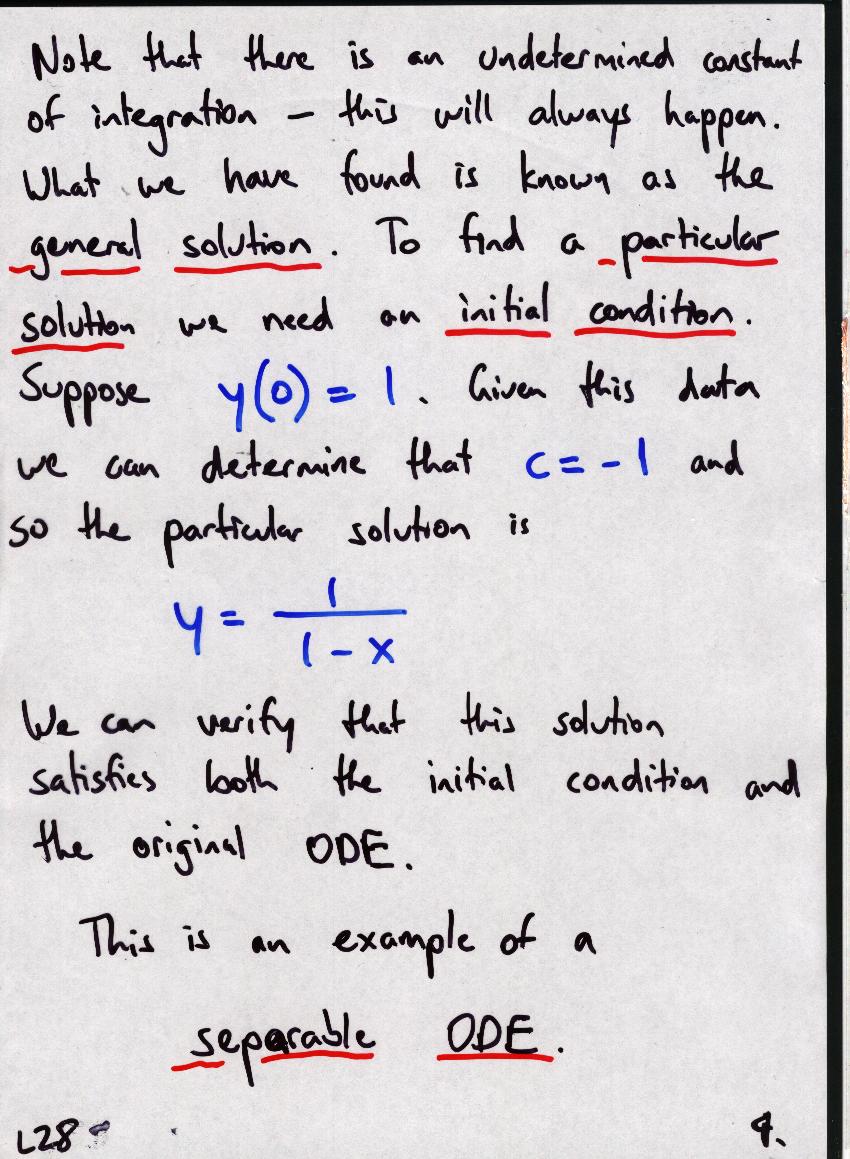 Note that there is an undetermined constant
of integration – this will always happen.
What we have found is known as the
general solution. To find a particular
solution we need an initial condition.
Suppose y(0) = 1. Given this data
we can determine that c = -1 and
so the particular solution is
y = 1 / (1 - x)
We can verify that this solution
satisfies both the initial condition and
the original ODE.
This is an example of a
separable ODE.
L28